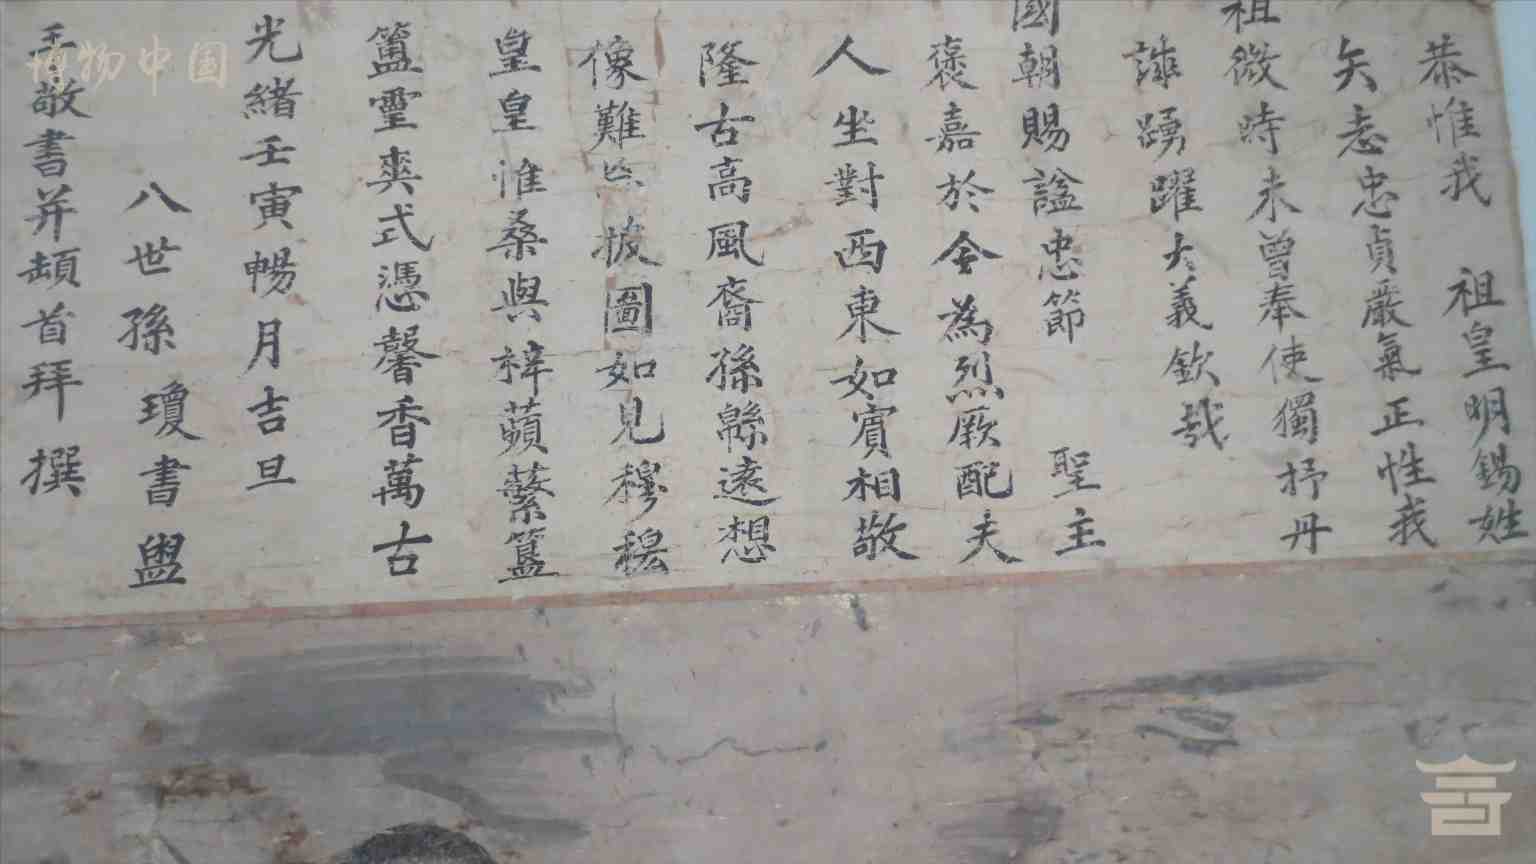 恭惟我 祖皇明錫姓
矢志忠貞嚴氣正性我
祖微時未曾奉使獨抒丹
誠踴躍大義欽哉
國朝賜諡忠節 聖主
褒嘉於今為烈厥配夫
人坐對西東如賓相敬
隆古高風裔孫緜遠想
像難 披圖如見穆穆
皇皇惟桑與梓蘋蘩簋
簠靈爽式憑馨香萬古
光緒壬寅暢月吉旦
八世孫瓊書盥
手敬書并頓首拜撰
博物中国